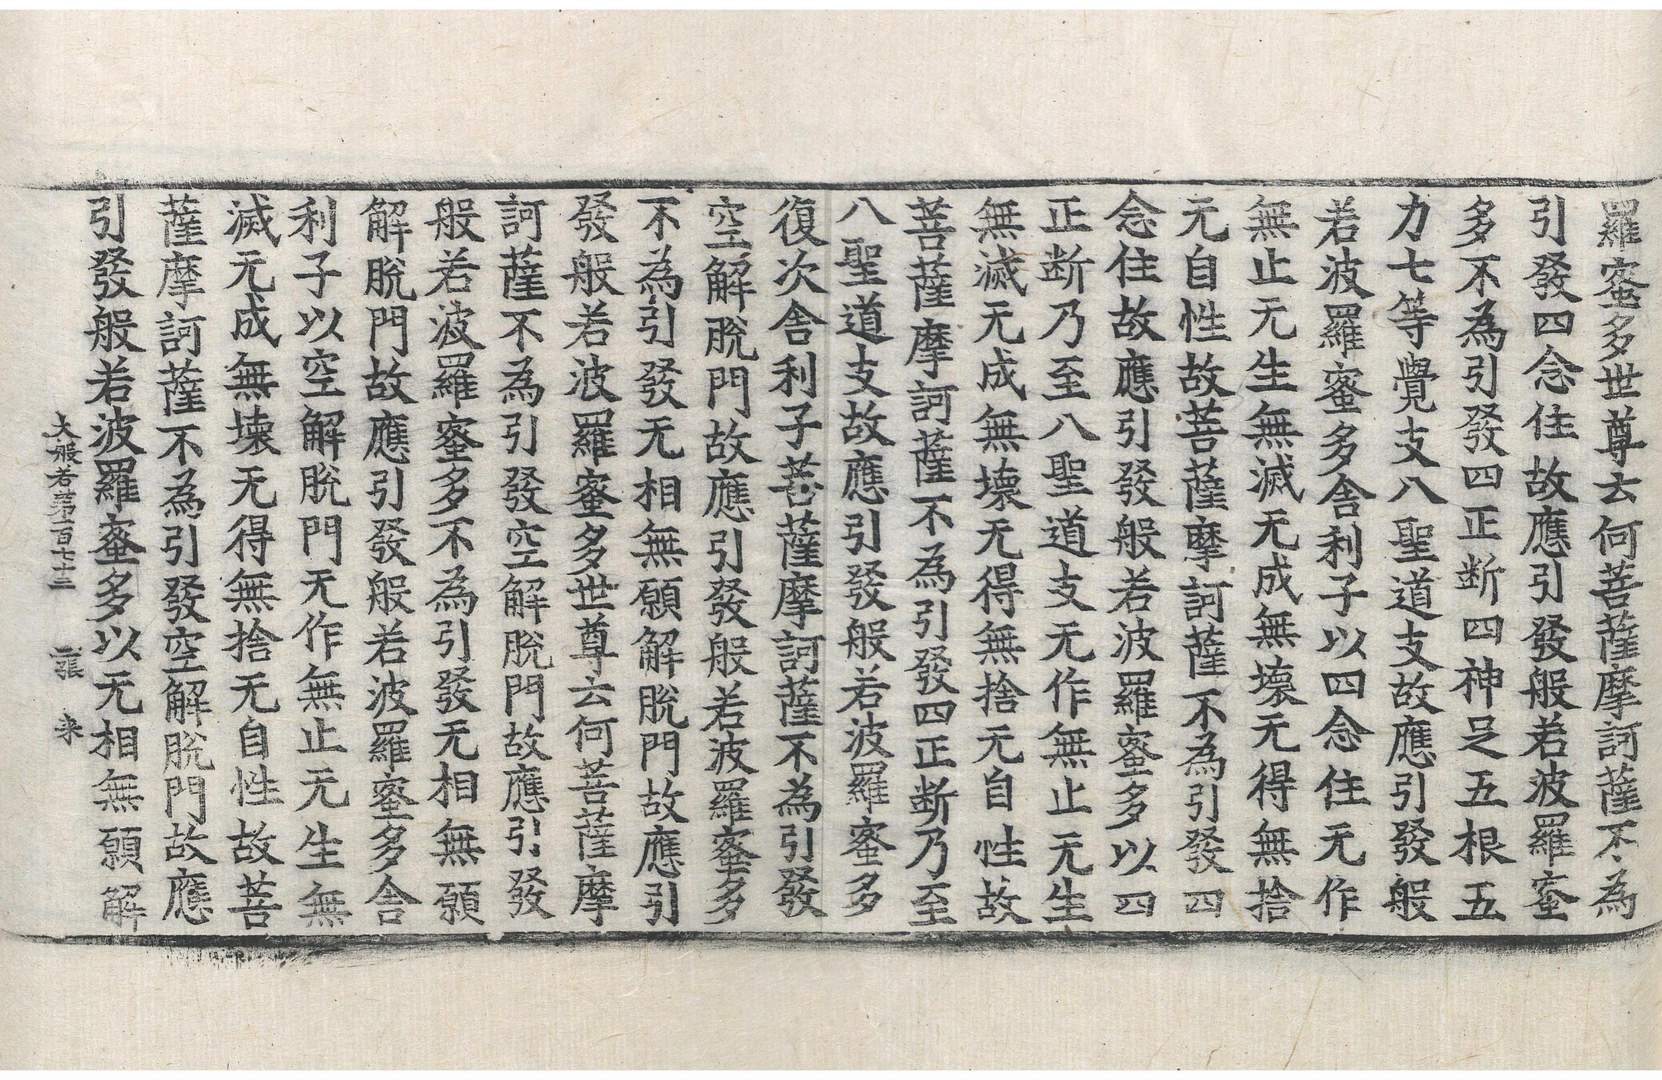 羅蜜多世尊云何菩薩摩訶薩不為
引發四念住故應引發般若波羅蜜
多不為引發四正断四神足五根五
力七等覺支八聖道支故應引發般
若波羅蜜多舍利子以四念住无作
無止无生無滅无成無壞无得無捨
无自性故菩薩摩訶薩不為引發四
念住故應引發般若波羅蜜多以四
正断乃至八聖道支无作無止无生
無滅无成無壞无得無捨无自性故
菩薩摩訶薩不為引發四正断乃至
八聖道支故應引發般若波羅蜜多
復次舍利子菩薩摩訶薩不為引發
空解脫門故應引發般若波羅蜜多
不為引發无相無願解脫門故應引
發般若波羅蜜多世尊云何菩薩摩
訶薩不為引發空解脫門故應引發
般若波羅蜜多不為引發无相無願
解脫門故應引發般若波羅蜜多舍
利子以空解脫門无作無止无生無
滅无成無壞无得無捨无自性故菩
薩摩訶薩不為引發空解脫門故應
引發般若波羅蜜多以无相無願解
大般若第一百七十二 二張 来